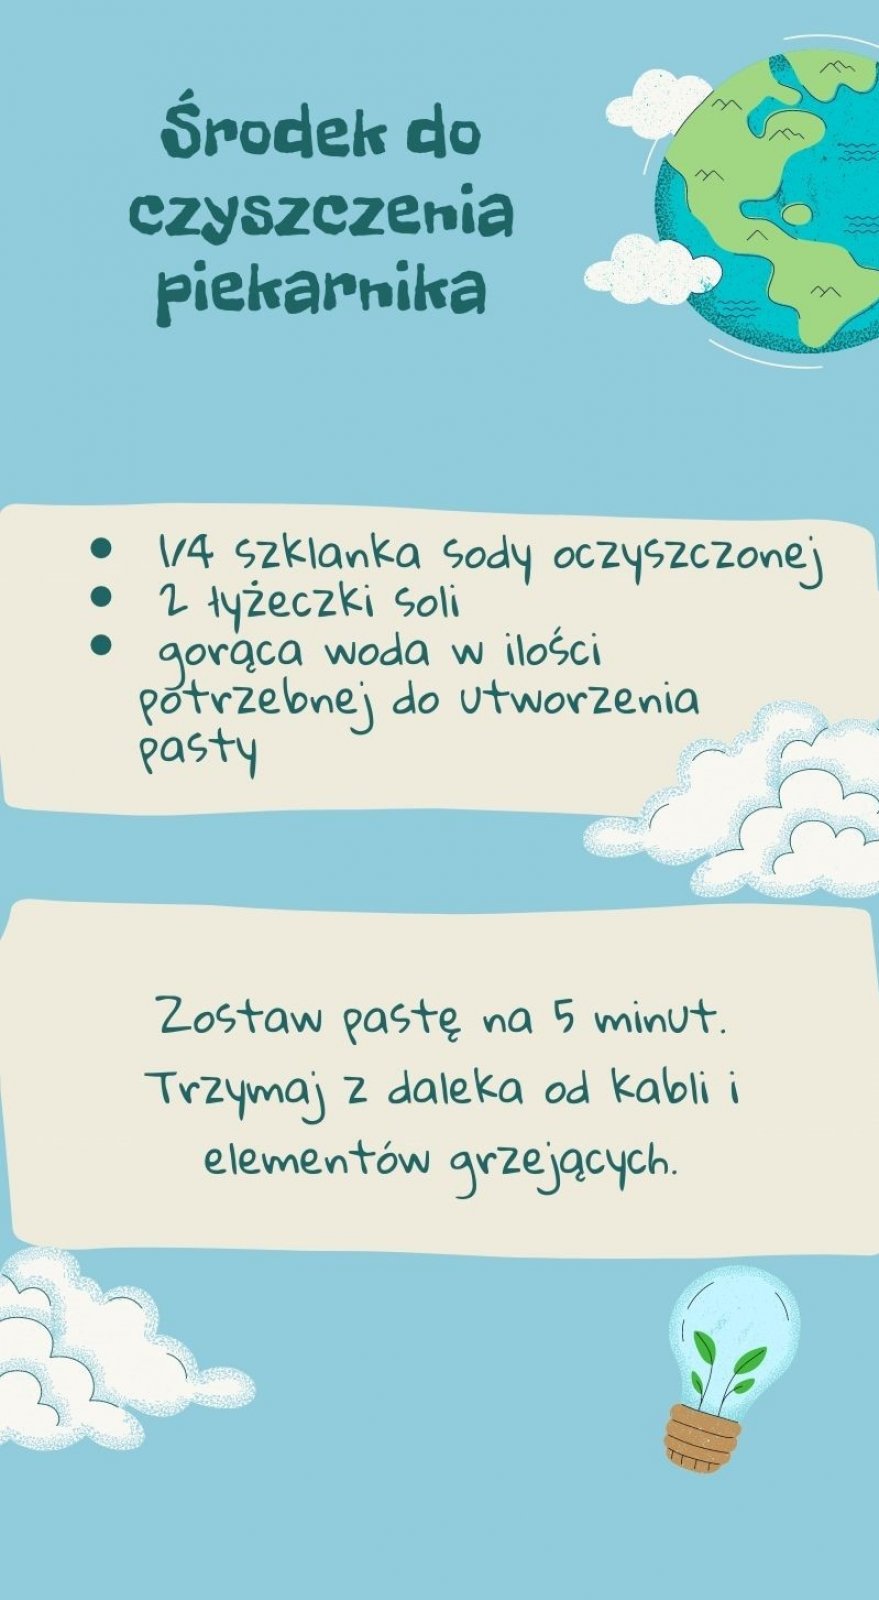 Środek do
czyszczenia
piekarnika
● 1/4 szklanka sody oczyszczonej
● 2 łyżeczki soli
● gorąca woda w ilości
potrzebnej do utworzenia
pasty
Zostaw pastę na 5 minut.
Trzymaj z daleka od kabli i
elementów grzejących.